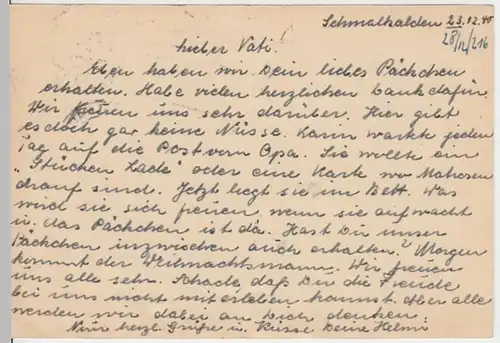 Schmalkalden 23.12.40
28/12/216
Lieber Vati!
Eben haben wir Dein liebes Päckchen
erhalten. Habe vielen herzlichen Dank dafür.
Wir freuen uns sehr darüber. Hier gibt
es doch gar keine Nüsse. Karin wartet jeden
Tag auf die Post vom Opa. Sie wollte ein
"Stückchen Lade" oder eine Karte wo Matrosen
drauf sind. Jetzt liegt sie im Bett. Was
wird sie sich freuen wenn sie aufwacht
u. das Päckchen ist da. Hast Du unser
Päckchen inzwischen auch erhalten? Morgen
kommt der Weihnachtsmann. Wir freuen
uns alle sehr. Schade, daß Du die Freude
bei uns nicht miterleben kannst. Aber alle
werden wir dabei an Dich denken.
Nun herzl. Grüße u. Küsse Deine Helmi